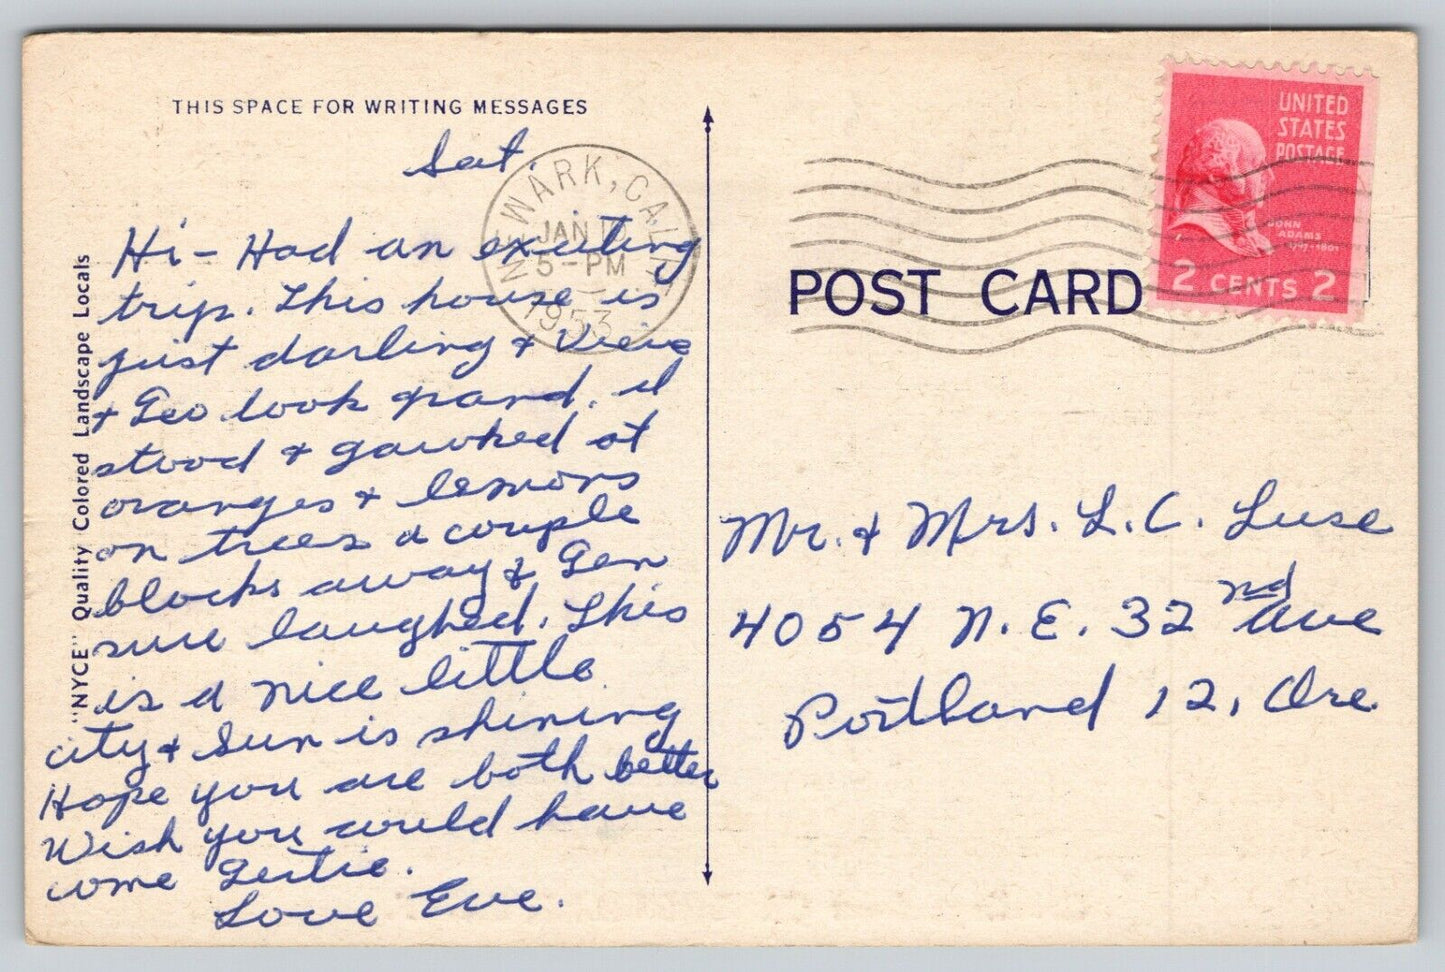 THIS SPACE FOR WRITING MESSAGES
Sat.
Hi - Had an exciting
trip. This house is
just darling &
& Geo look grand. I
stood & gawked at
oranges & lemons
on trees a couple
blocks away & Gen
sure laughed. This
is a nice little
city & Sun is shining
Hope you are both better
Wish you could have
come Gertie.
Love Eve.
"NYCE" Quality Colored Landscape Locals
NEWARK, CALIF.
JAN
5 - PM
1953
UNITED
STATES
POSTAGE
JOHN
ADAMS
1797-1801
2 CENTS 2
POST CARD
Mr. & Mrs. L. C. Luse
4054 N. E. 32nd Ave
Portland 12, Ore